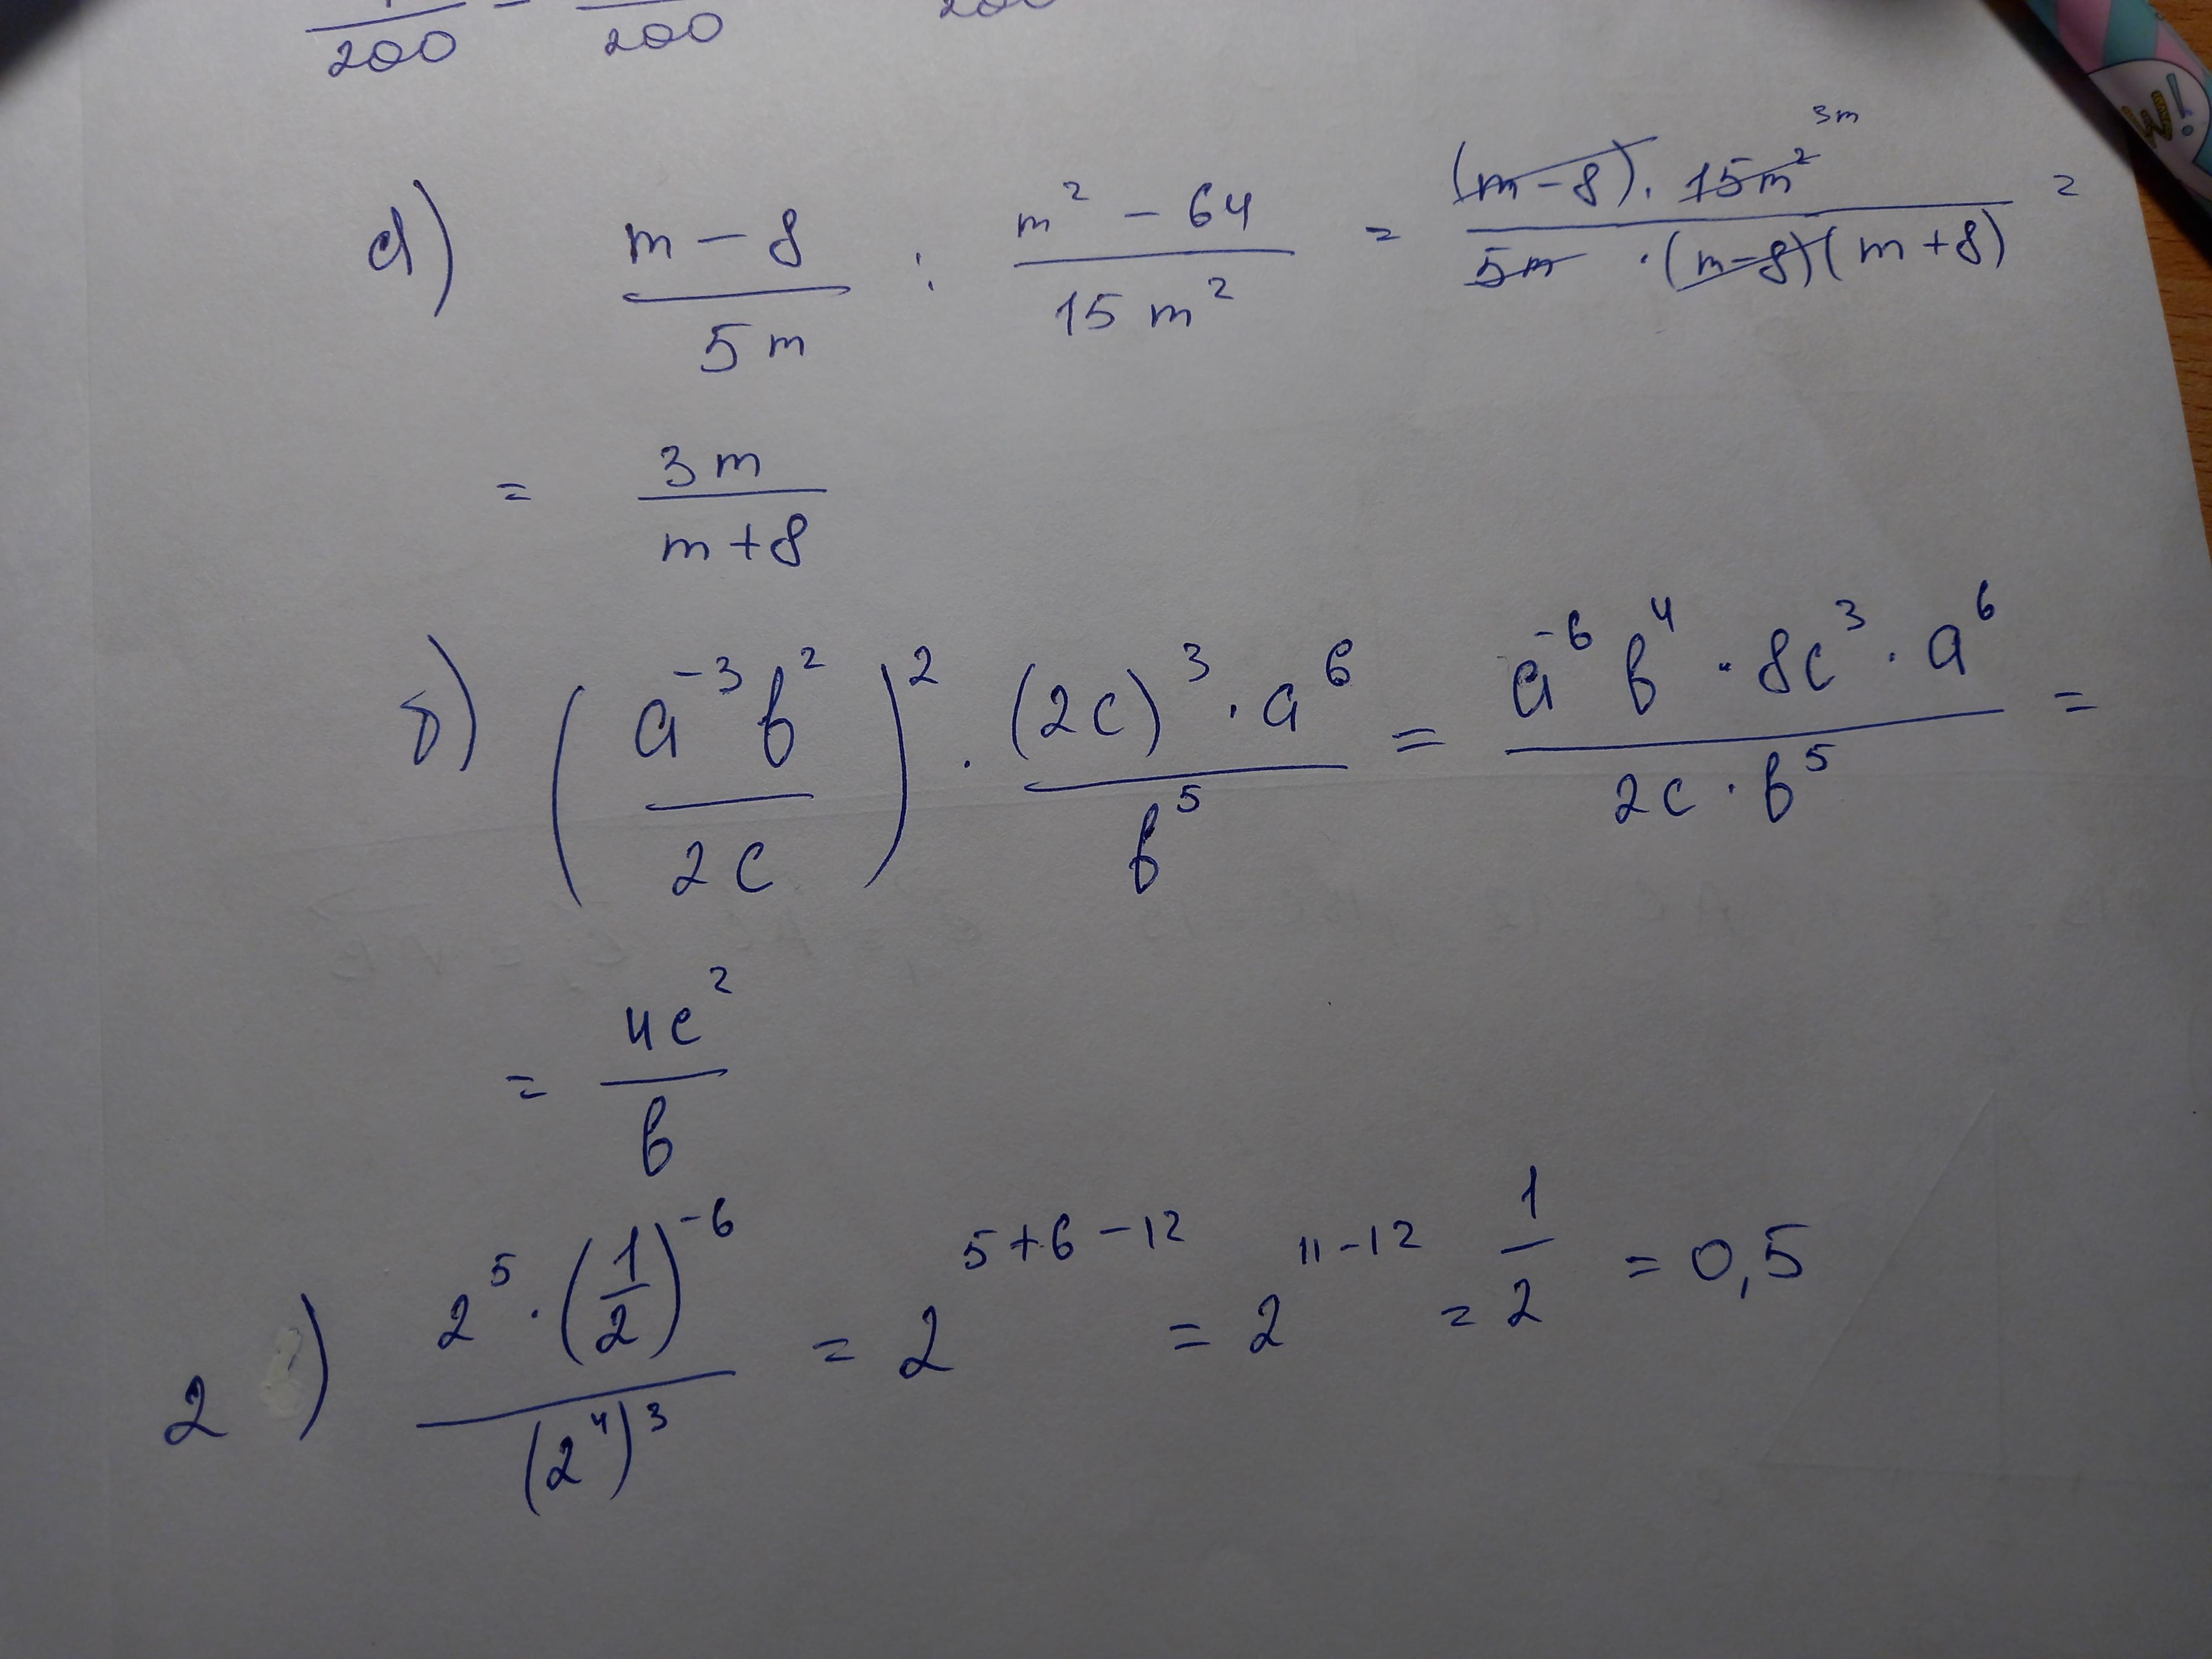 200 - 200 200
а) (m - 8)/(5m) : (m² - 64)/(15m²) = ((m-8) · 15m² 3m)/(5m · (m-8)(m+8)) =
= 3m/(m+8)
б) ((a⁻³b²)/(2c))² · ((2c)³ · a⁶)/b⁵ = (a⁻⁶b⁴ · 8c³ · a⁶)/(2c · b⁵) =
= 4c²/b
2) (2⁵ · (1/2)⁻⁶)/((2⁴)³) = 2⁵⁺⁶⁻¹² = 2¹¹⁻¹² = 1/2 = 0,5